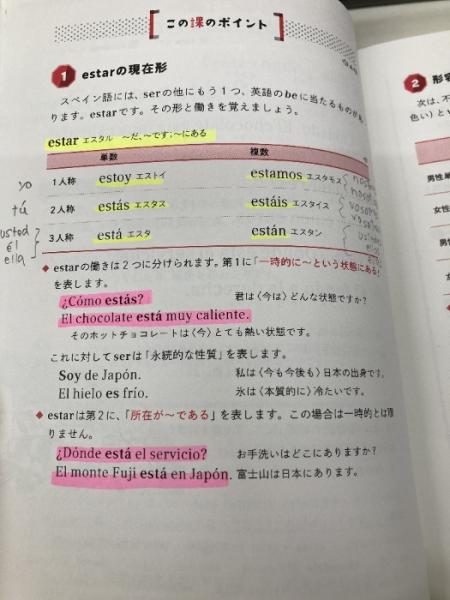 この課のポイント
1 estarの現在形
スペイン語には、serの他にもう1つ、英語のbeに当たるものがあ
ります。estarです。その形と働きを覚えましょう。
estar エスタル ～だ、～です；～にある
単数 複数
yo 1人称 estoy エストイ estamos エスタモス
tú 2人称 estás エスタス estáis エスタイス
usted él ella 3人称 está エスタ están エスタン
◆ estarの働きは2つに分けられます。第1に「一時的に～という状態にある」
を表します。
¿Cómo estás? 君は〈今は〉どんな状態ですか？
El chocolate está muy caliente.
そのホットチョコレートは〈今〉とても熱い状態です。
これに対してserは「永続的な性質」を表します。
Soy de Japón. 私は〈今も今後も〉日本の出身です。
El hielo es frío. 氷は〈本質的に〉冷たいです。
◆ estarは第2に、「所在が～である」を表します。この場合は一時的とは限
りません。
¿Dónde está el servicio? お手洗いはどこにありますか？
El monte Fuji está en Japón. 富士山は日本にあります。
2 形容
次は、不
色い）とv
男性単
女性
男
女